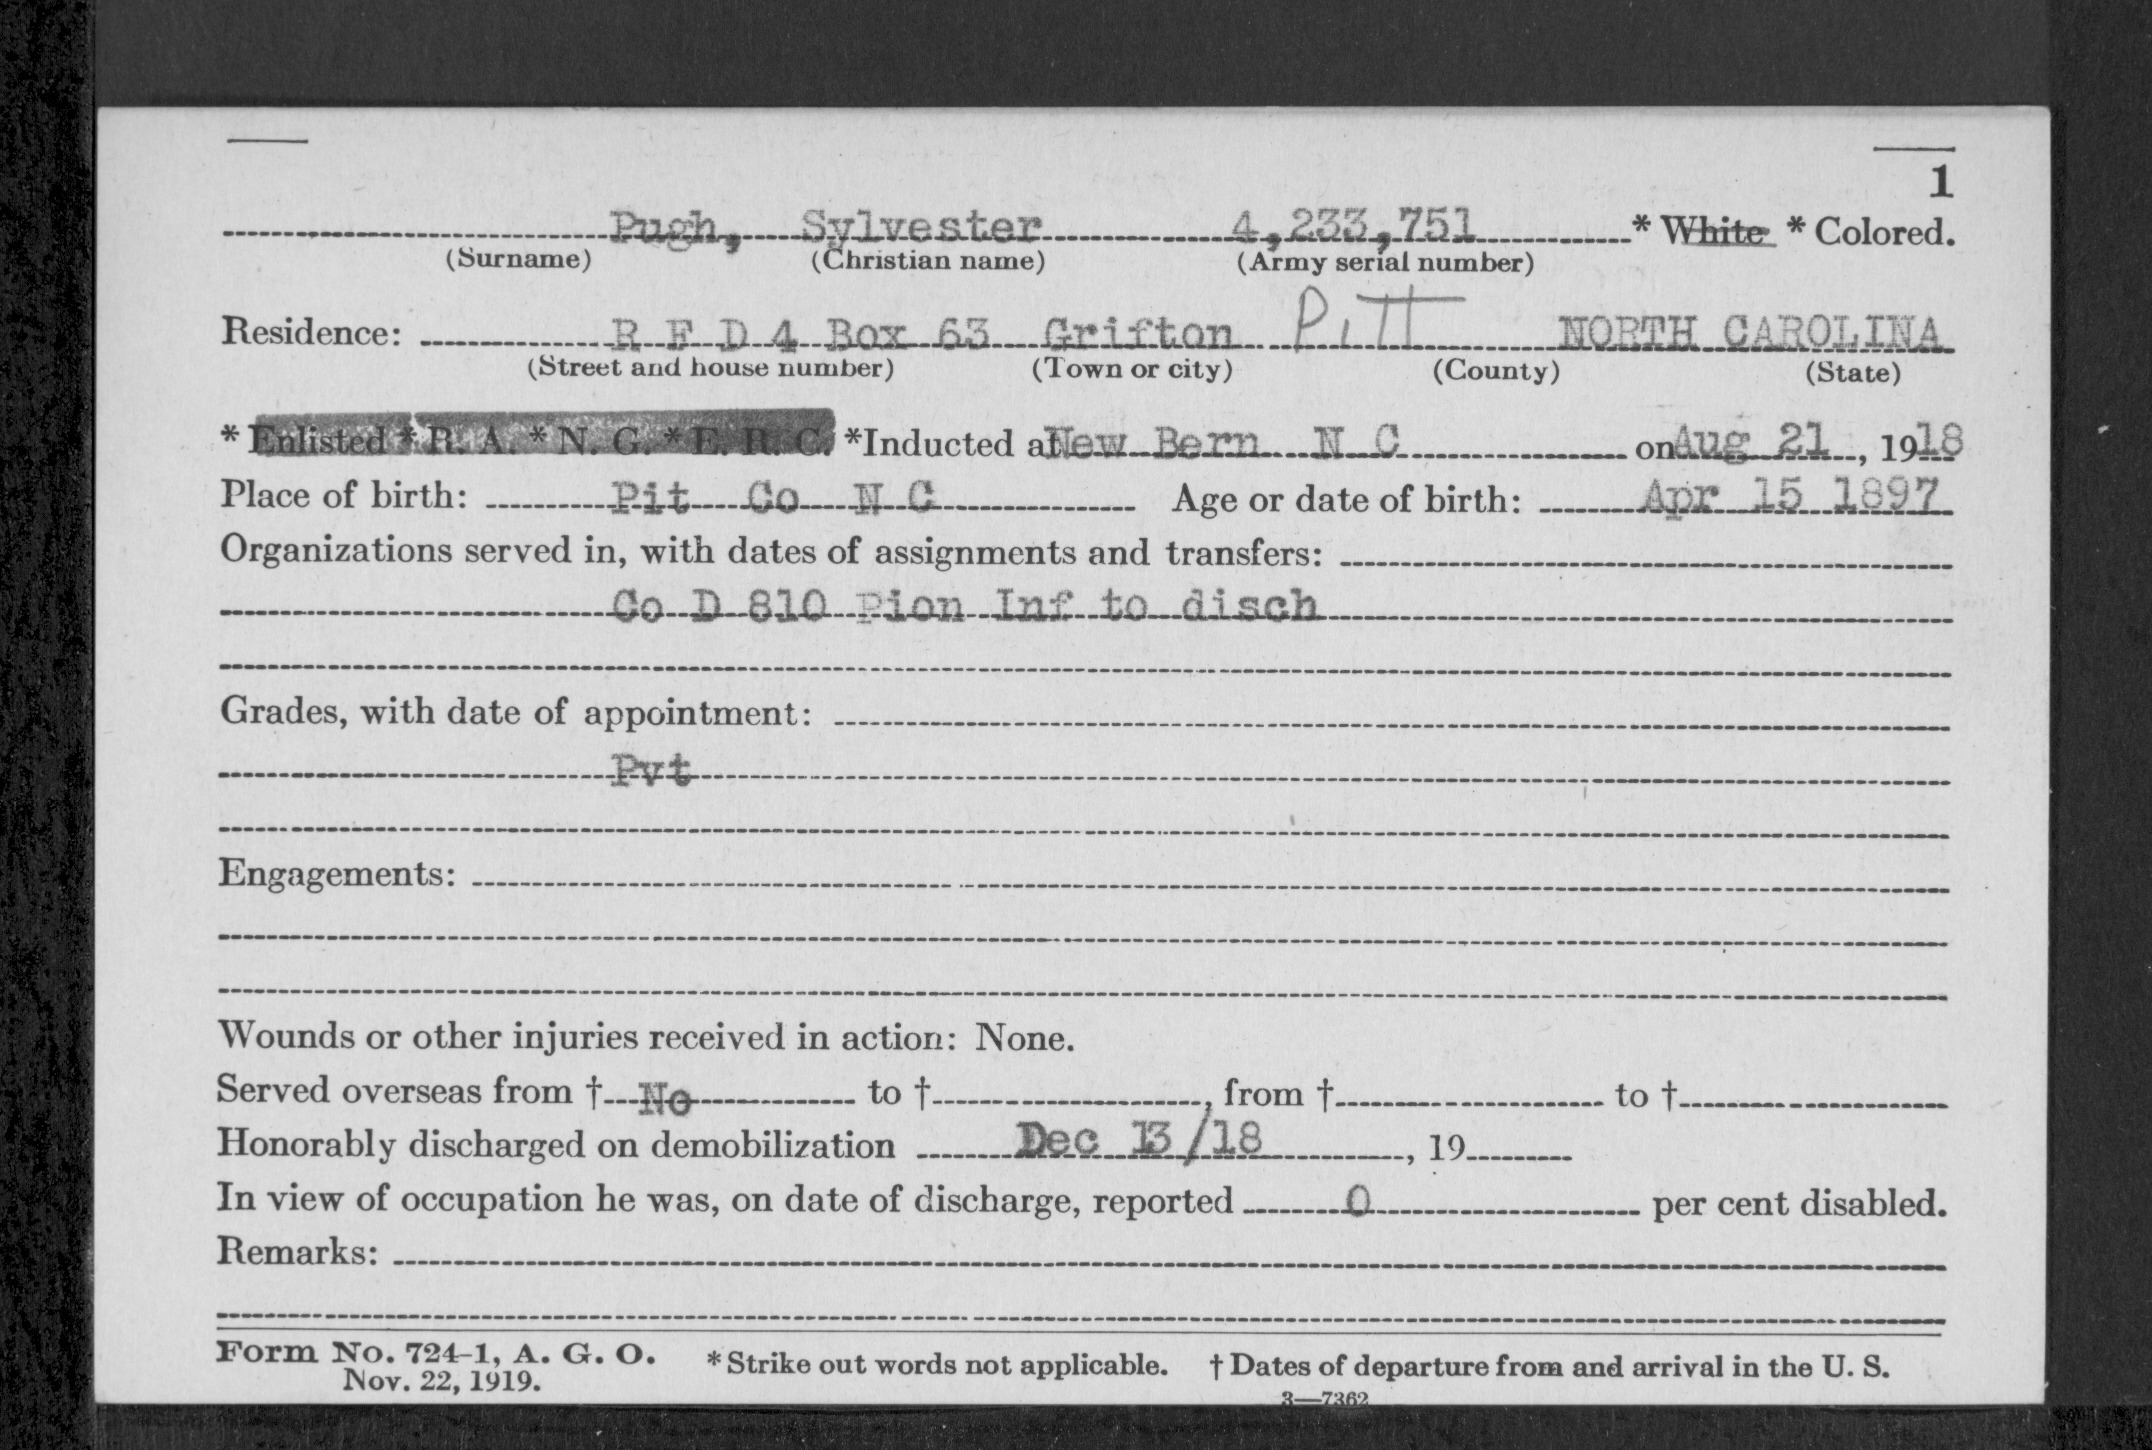 1
Pugh, Sylvester 4,233,751 * White * Colored.
(Surname) (Christian name) (Army serial number)
Residence: R F D 4 Box 63 Grifton Pitt NORTH CAROLINA
(Street and house number) (Town or city) (County) (State)
* Enlisted * R. A. * N. G. * E. R. C. *Inducted at New Bern N C on Aug 21, 1918
Place of birth: Pit Co N C Age or date of birth: Apr 15 1897
Organizations served in, with dates of assignments and transfers:
Co D 810 Pion Inf to disch
Grades, with date of appointment:
Pvt
Engagements:
Wounds or other injuries received in action: None.
Served overseas from † No to †, from † to †
Honorably discharged on demobilization Dec 13/18, 19
In view of occupation he was, on date of discharge, reported 0 per cent disabled.
Remarks:
Form No. 724-1, A. G. O. * Strike out words not applicable. † Dates of departure from and arrival in the U. S.
Nov. 22, 1919.
3—7362